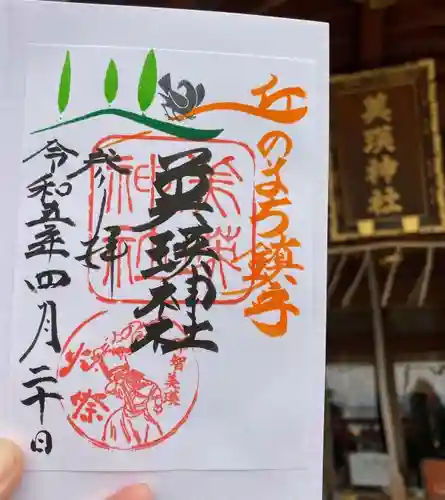 丘のまち鎮守
美瑛神社
美瑛神社
智美瑛
火祭
拝
令和五年四月二十日
美瑛神社